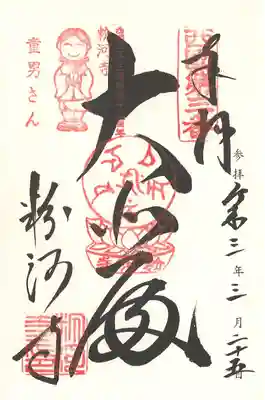 奉拝
参拝 令和三年三月二十五日
大悲殿
粉河寺
童男さん
粉河寺